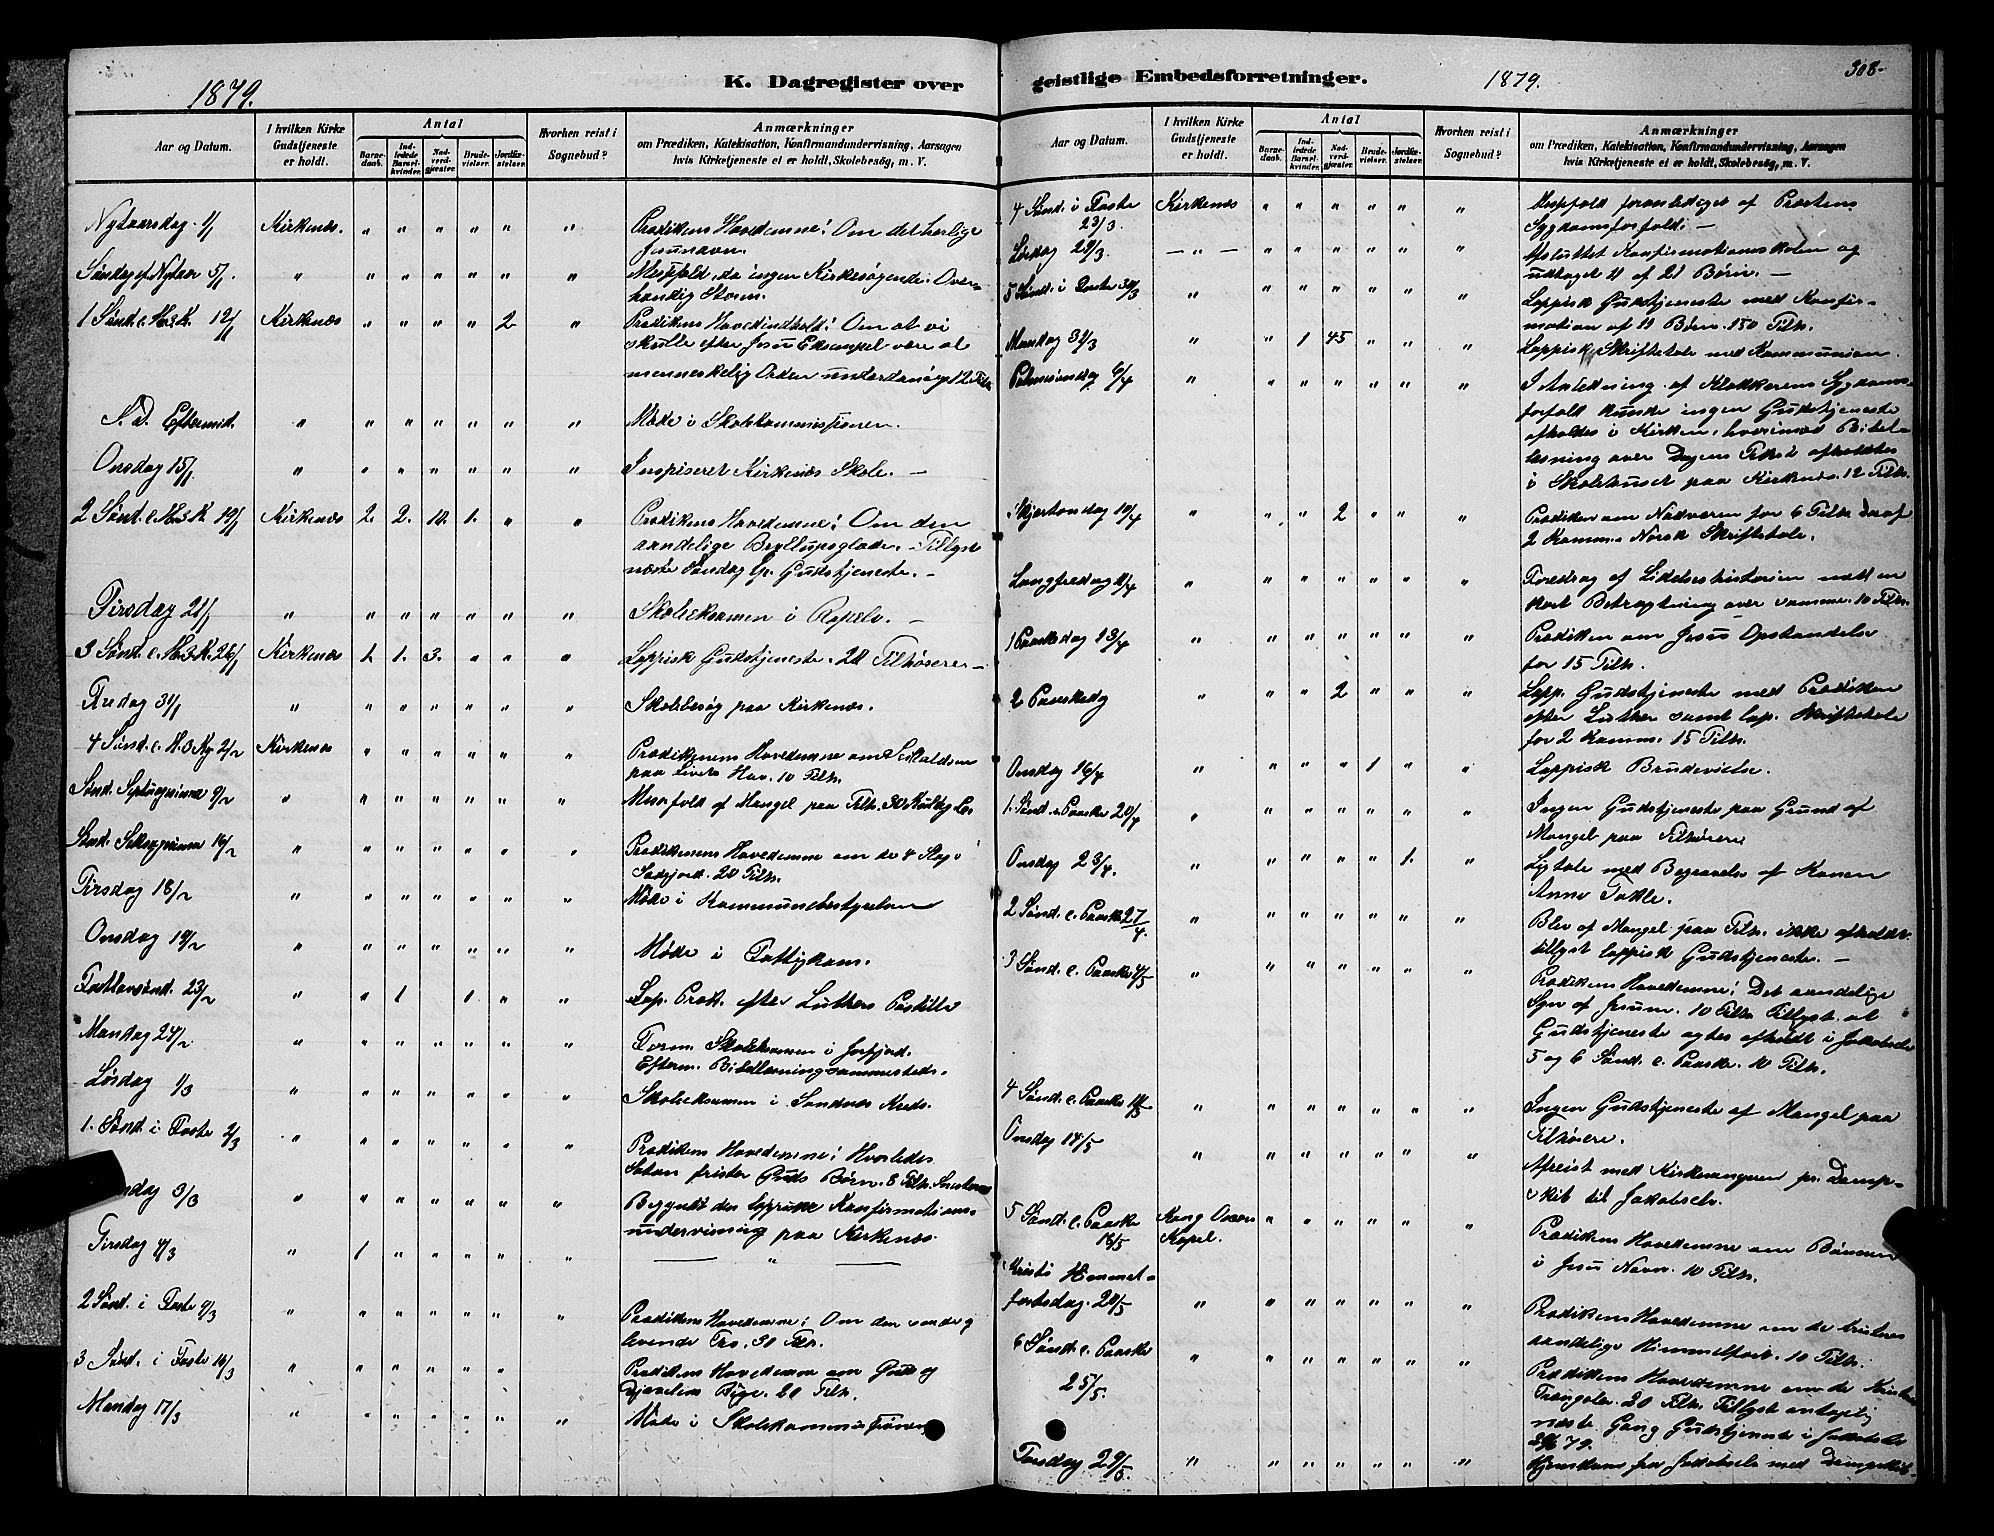 1879.
K. Dagregister over
Aar og Datum.
I hvilken Kirke Gudstjeneste er holdt.
Antal
Barnedaab.
Indledede Barselkvinder.
Nadverdgjæster.
Brudevielser.
Jordfæstelser.
Hvorhen reist i Sognebud?
Anmærkninger
om Prædiken, Katekisation, Konfirmandundervisning, Aarsagen
hvis Kirketjeneste ei er holdt, Skolebesög, m. V.
Nytaarsdag 1/1 Kirkenæs. " " " " " " Prædikens Hovedemne: Om det herlige
Jesunavn.
Søndag ef. Nytaar 5/1. " " " " " " " Messefald, da ingen Kirkesøgende. Over-
hændig Storm.
1 Sønd. e. H.3.K. 12/1 Kirkenæs " " " " 2 " Prædikens Hovedindhold: Om at vi
skulle efter Jesu Eksempel være al
menneskelig Orden underdanig 12 Tilh
S. D. Eftermid. " " " " " " " Møde i Skolekommissionen.
Onsdag 15/1 " " " " " " " Inspiseret Kirkenæs Skole. —
2 Sønd. e. H.3.K. 19/1 Kirkenæs 2. 2. 10. 1. " " Prædikens Hovedemne: Om den
aandelige Bryllupsglæde. - Tillyst
næste Søndag lp. Gudstjeneste. —
Tirsdag 21/1 " " " " " " " Skoleeksamen i Ropelv. —
3 Sønd. e. H.3.K. 26/1 Kirkenæs 1. 1. 3. " " " Lappisk Gudstjeneste. 20 Tilhørere —
Fredag 31/1 " " " " " " " Skolebesøg paa Kirkenæs.
4 Sønd. e. H.3.K. 2/2 Kirkenæs " " " " " " Prædikenens Hovedemne om
paa Livets Hav. 10 Tilh.
Sønd. Septuagesima 9/2 " " " " " " " Messefald af Mangel paa Tilh.
Sønd. Seksagesima 16/2 " " " " " " " Prædikenens Hovedemne om de 4 Slags
Sædejord. 20 Tilh.
Tirsdag 18/2 " " " " " " " Møde i Kommunebestyrelsen
Onsdag 19/2 " " " " " " " Møde i Fattigkom.
Fastelavnsønd. 23/2 " " 1 1 " " Lap. Præd. efter Luthers Postille
Mandag 24/2 " " " " " " " Form. Skoleksamen i Jarfjord.
Efterm. Bibellæsning sammesteds.
Lørdag 1/3 " " " " " " " Skoleeksamen i Sandnæs Kreds.
1. Sønd. i Faste 2/3 " " " " " " " Prædikens Hovedemne: Hvorledes
Satan frister Guds Børn. 8 Tilh.
3/3 " " " " " " " Begyndt den lappiske Konfirmations-
undervisning paa Kirkenæs.
Tirsdag 4/3 " 1 " " " " " — " —
2 Sønd. i Faste 9/3 " " " " " " " Prædikens Hovedemne: Om den sande og
levende Tro. 30 Tilh.
3 Sønd. i Faste 16/3 " " " " " " " Prædikens Hovedemne om Guds og
Djævelens Rige. 20 Tilh.
Mandag 17/3 " " " " " " " Møde i Skolekommissionen
geistlige Embedsforretninger.
1879.
308.
Aar og Datum.
I hvilken Kirke Gudstjeneste er holdt.
Antal
Barnedaab.
Indledede Barselkvinder.
Nadverdgjæster.
Brudevielser.
Jordfæstelser.
Hvorhen reist i Sognebud?
Anmærkninger
om Prædiken, Katekisation, Konfirmandundervisning, Aarsagen
hvis Kirketjeneste ei er holdt, Skolebesög, m. V.
4 Sønd. i Faste 23/3. Kirkenæs " " " " " " Messfald foranlediget af Præstens
Sygdomsforfald. —
Lørdag 29/3. — " — " " " " " " Afsluttet Konfirmationsskolen og
udtaget 11 af 21 Børn. —
5 Sønd. i Faste 30/3 " " " " " " " Lappisk Gudstjeneste med Konfir-
mation af 11 Børn. 150 Tilh.
Mandag 31/3 " " 1 45 " " " Lappisk Skriftetale med Kommunion.
Palmesøndag 6/4 " " " " " " " I Anledning af Klokkerens Sygdoms-
forfald kunde ingen Gudstjeneste
afholdes i Kirken, hvorimod Bibel-
læsning over Dagens Tekst afholdtes
i Skolehuset paa Kirkenæs. 12 Tilh.
Skjærtorsdag 10/4 " " " 2 " " " Prædiken om Nadveren for 6 Tilh. deraf
2 Komm. Norsk Skriftetale.
Langfredag 11/4 " " " " " " " Foredrag af Lidelseshistorien med en
kort Betragtning over samme. 10 Tilh.
1 Paaskedag 13/4 " " " " " " " Prædiken om Jesu Opstandelse
for 15 Tilh.
2 Paaskedag " " " 2 " " " Lapp. Gudstjeneste med Prædiken
efter Luther samt lap. Skriftetale
for 2 Komm. 15 Tilh.
Onsdag 16/4 " " " " 1 " " Lappisk Brudevielse.
1. Sønd. e. Paaske 20/4 " " " " " " " Ingen Gudstjeneste paa Grund af
Mangel paa Tilhørere
Onsdag 23/4. " " " " " 1. " Ligtale med Begravelse af Konen
Anne Takle.
2 Sønd. e. Paaske 27/4. " " " " " " " Blev af Mangel paa Tilh. ikke afholdt
tillyst lappisk Gudstjeneste. —
3 Sønd. e. Paaske 4/5 " " " " " " " Prædikens Hovedemne: Det aandelige
Syn af Jesum. 10 Tilh. Tillyst at
Gudstjeneste agtes afholdt i Jakobselv
5 og 6 Sønd. e. Paaske. 10 Tilh.
4 Sønd. e. Paaske 11/5 " " " " " " " Ingen Gudstjeneste af Mangel paa
Tilhørere.
Onsdag 14/5 " " " " " " " Afreist med Kirkesangeren pr. Damp-
skib til Jakobselv.
5 Sønd. e. Paaske 18/5 Kong Oscars Kapel. " " " " " " Prædikens Hovedemne om Bønnen
i Jesu Navn. 10 Tilh.
Kristi Himmel-
fartsdag. 20/5 " " " " " " " Prædikens Hovedemne om de kristnes
aandelige Himmelfart. 10 Tilh.
6 Sønd. e. Paaske 25/5. " " " " " " " Prædikens Hovedemne om de Kristnes
Trængsler. 20 Tilh. Tillyst antagelig
næste Gang Gudstjeneste i Jakobselv
79.
Torsdag 29/5. " " " " " " " Hjemkom fra Jakobselv med Dampskib